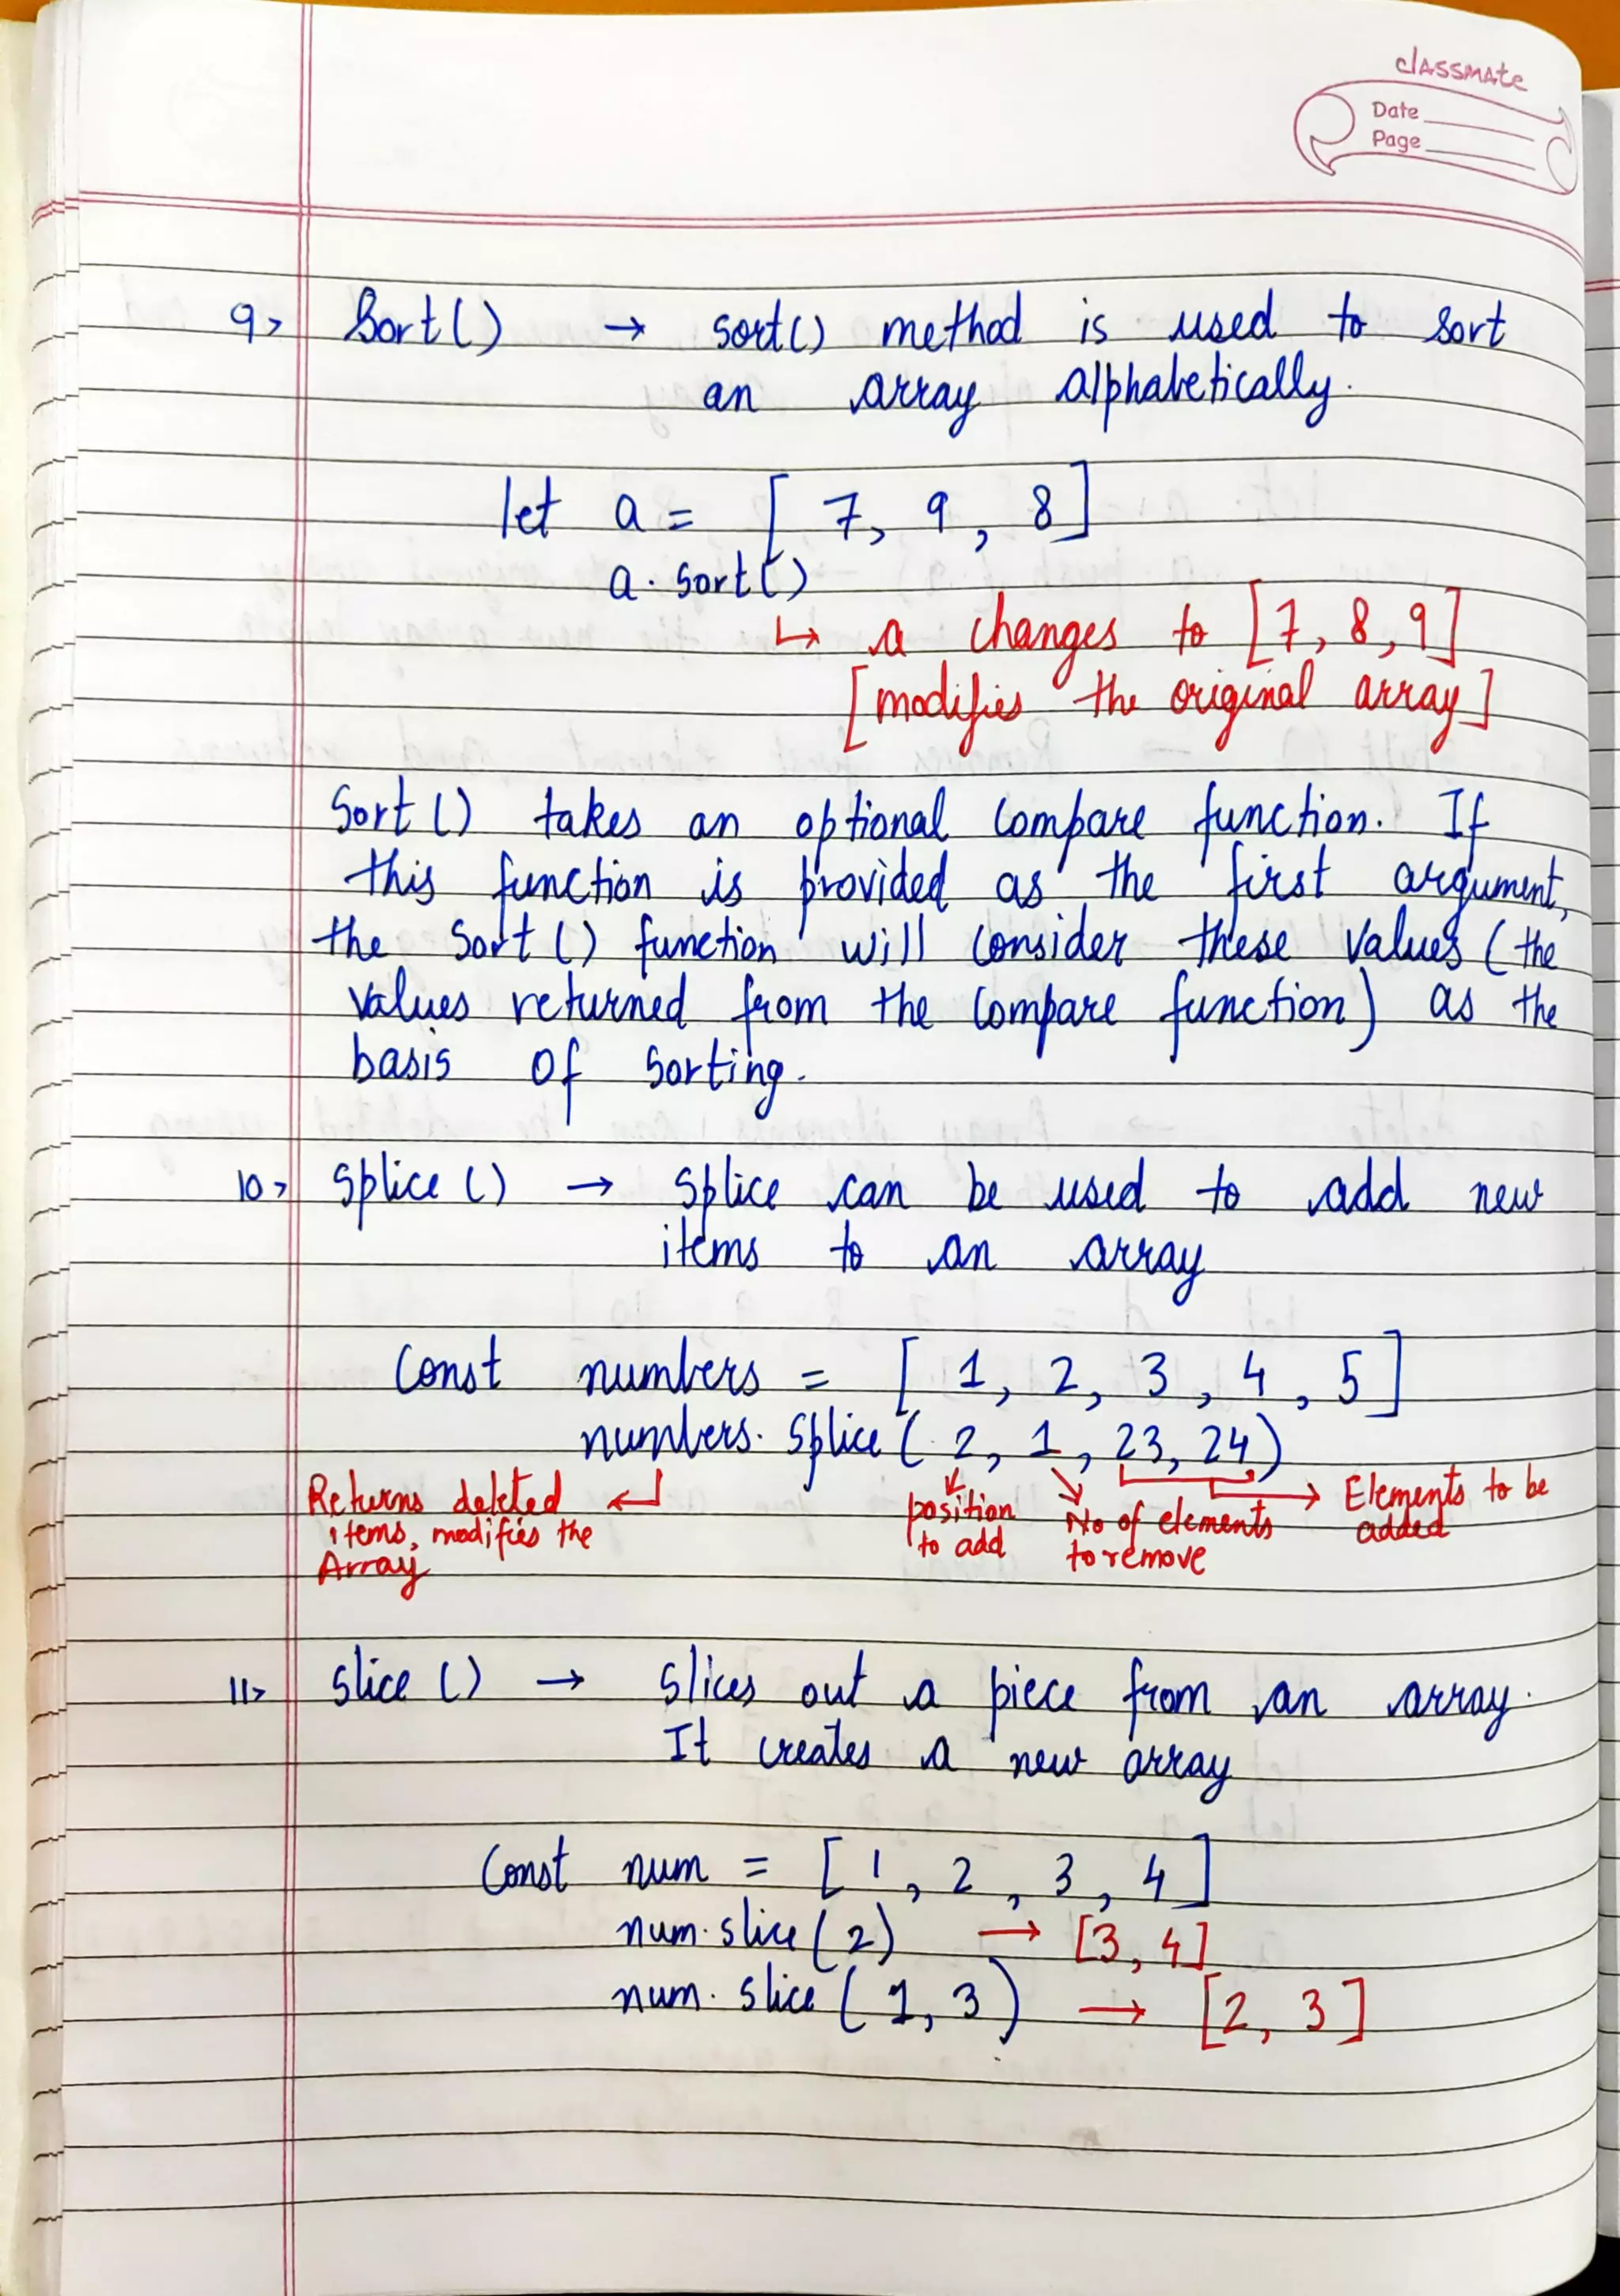 classmate
Date
Page
9> Sort() → sort() method is used to sort
an array alphabetically.
let a = [ 7, 9, 8 ]
a.sort()
↳ a changes to [7, 8, 9]
[modifies the original array]
Sort() takes an optional compare function. If
this function is provided as the first argument,
the sort() function will consider these values (the
values returned from the compare function) as the
basis of sorting.
10> splice() → splice can be used to add new
items to an array
Const numbers = [ 1, 2, 3, 4, 5 ]
numbers.splice( 2, 1, 23, 24)
Returns deleted ↵ position No of elements → Elements to be
items, modifies the to add to remove added
Array
11> slice() → slices out a piece from an array.
It creates a new array
Const num = [ 1, 2, 3, 4 ]
num.slice(2) → [3, 4]
num.slice( 1, 3 ) → [2, 3]